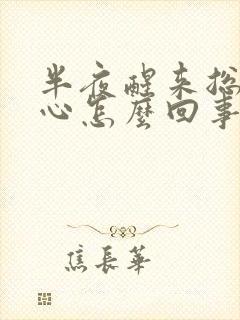 半夜醒来总
心怎麼回事
焦長華